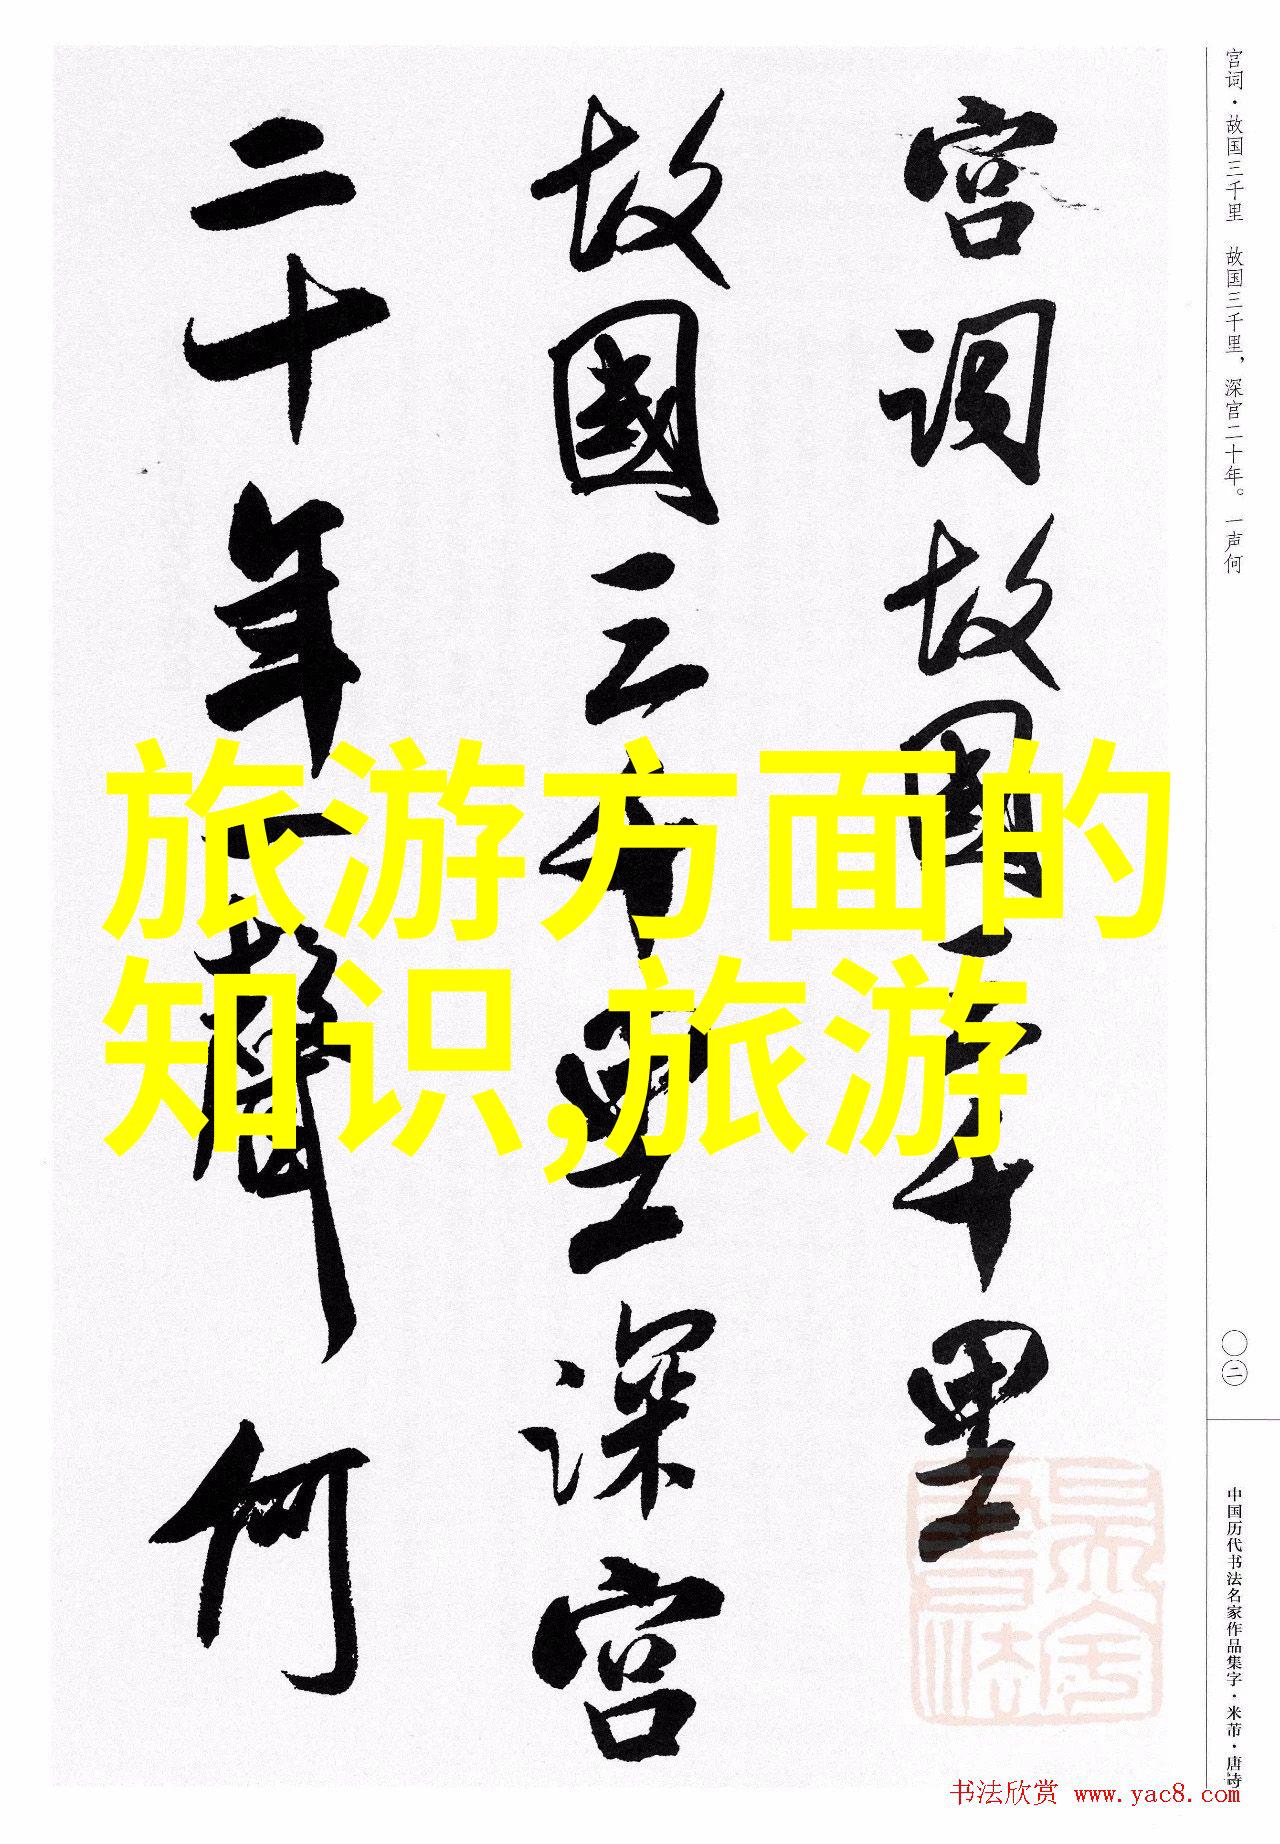 宫词故国三千里
故國三千里深宫
二十年一聲何
旅游方面的
知识,旅游
宫词·故国三千里 故国三千里，深宫二十年。一声何
〇二
中国历代书法名家作品集字·米芾·唐诗
书法欣赏 www.yac8.com